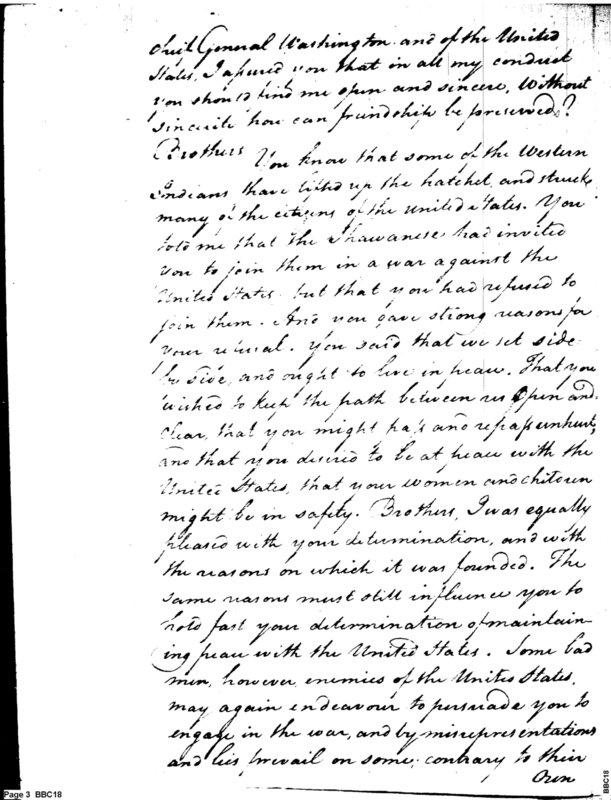 chief General Washington and of the United
States, I assured you that in all my conduct
you should find me open and sincere, Without
sincerity how can friendship be preserved?
Brothers You know that some of the Western
Indians have lifted up the hatchet, and struck
many of the citizens of the United States. You
told me that the Shawanese had invited
you to join them in a war against the
United States, but that you had refused to
join them. And you gave strong reasons for
your refusal. You said that we set side
by side, and ought to live in peace. That you
wished to keep the path between us Open and
clear, that you might pass and repass unhurt;
and that you desired to be at peace with the
United States, that your women and children
might be in safety. Brothers, I was equally
pleased with your determination, and with
the reasons on which it was founded. The
same reasons must still influence you to
hold fast your determination of maintain-
ing peace with the United States. Some bad
men, however, enemies of the United States,
may again endeavour to persuade you to
engage in the war, and by misrepresentations
and lies prevail on some, contrary to their
Own
Page 3 BBC18
BBC18